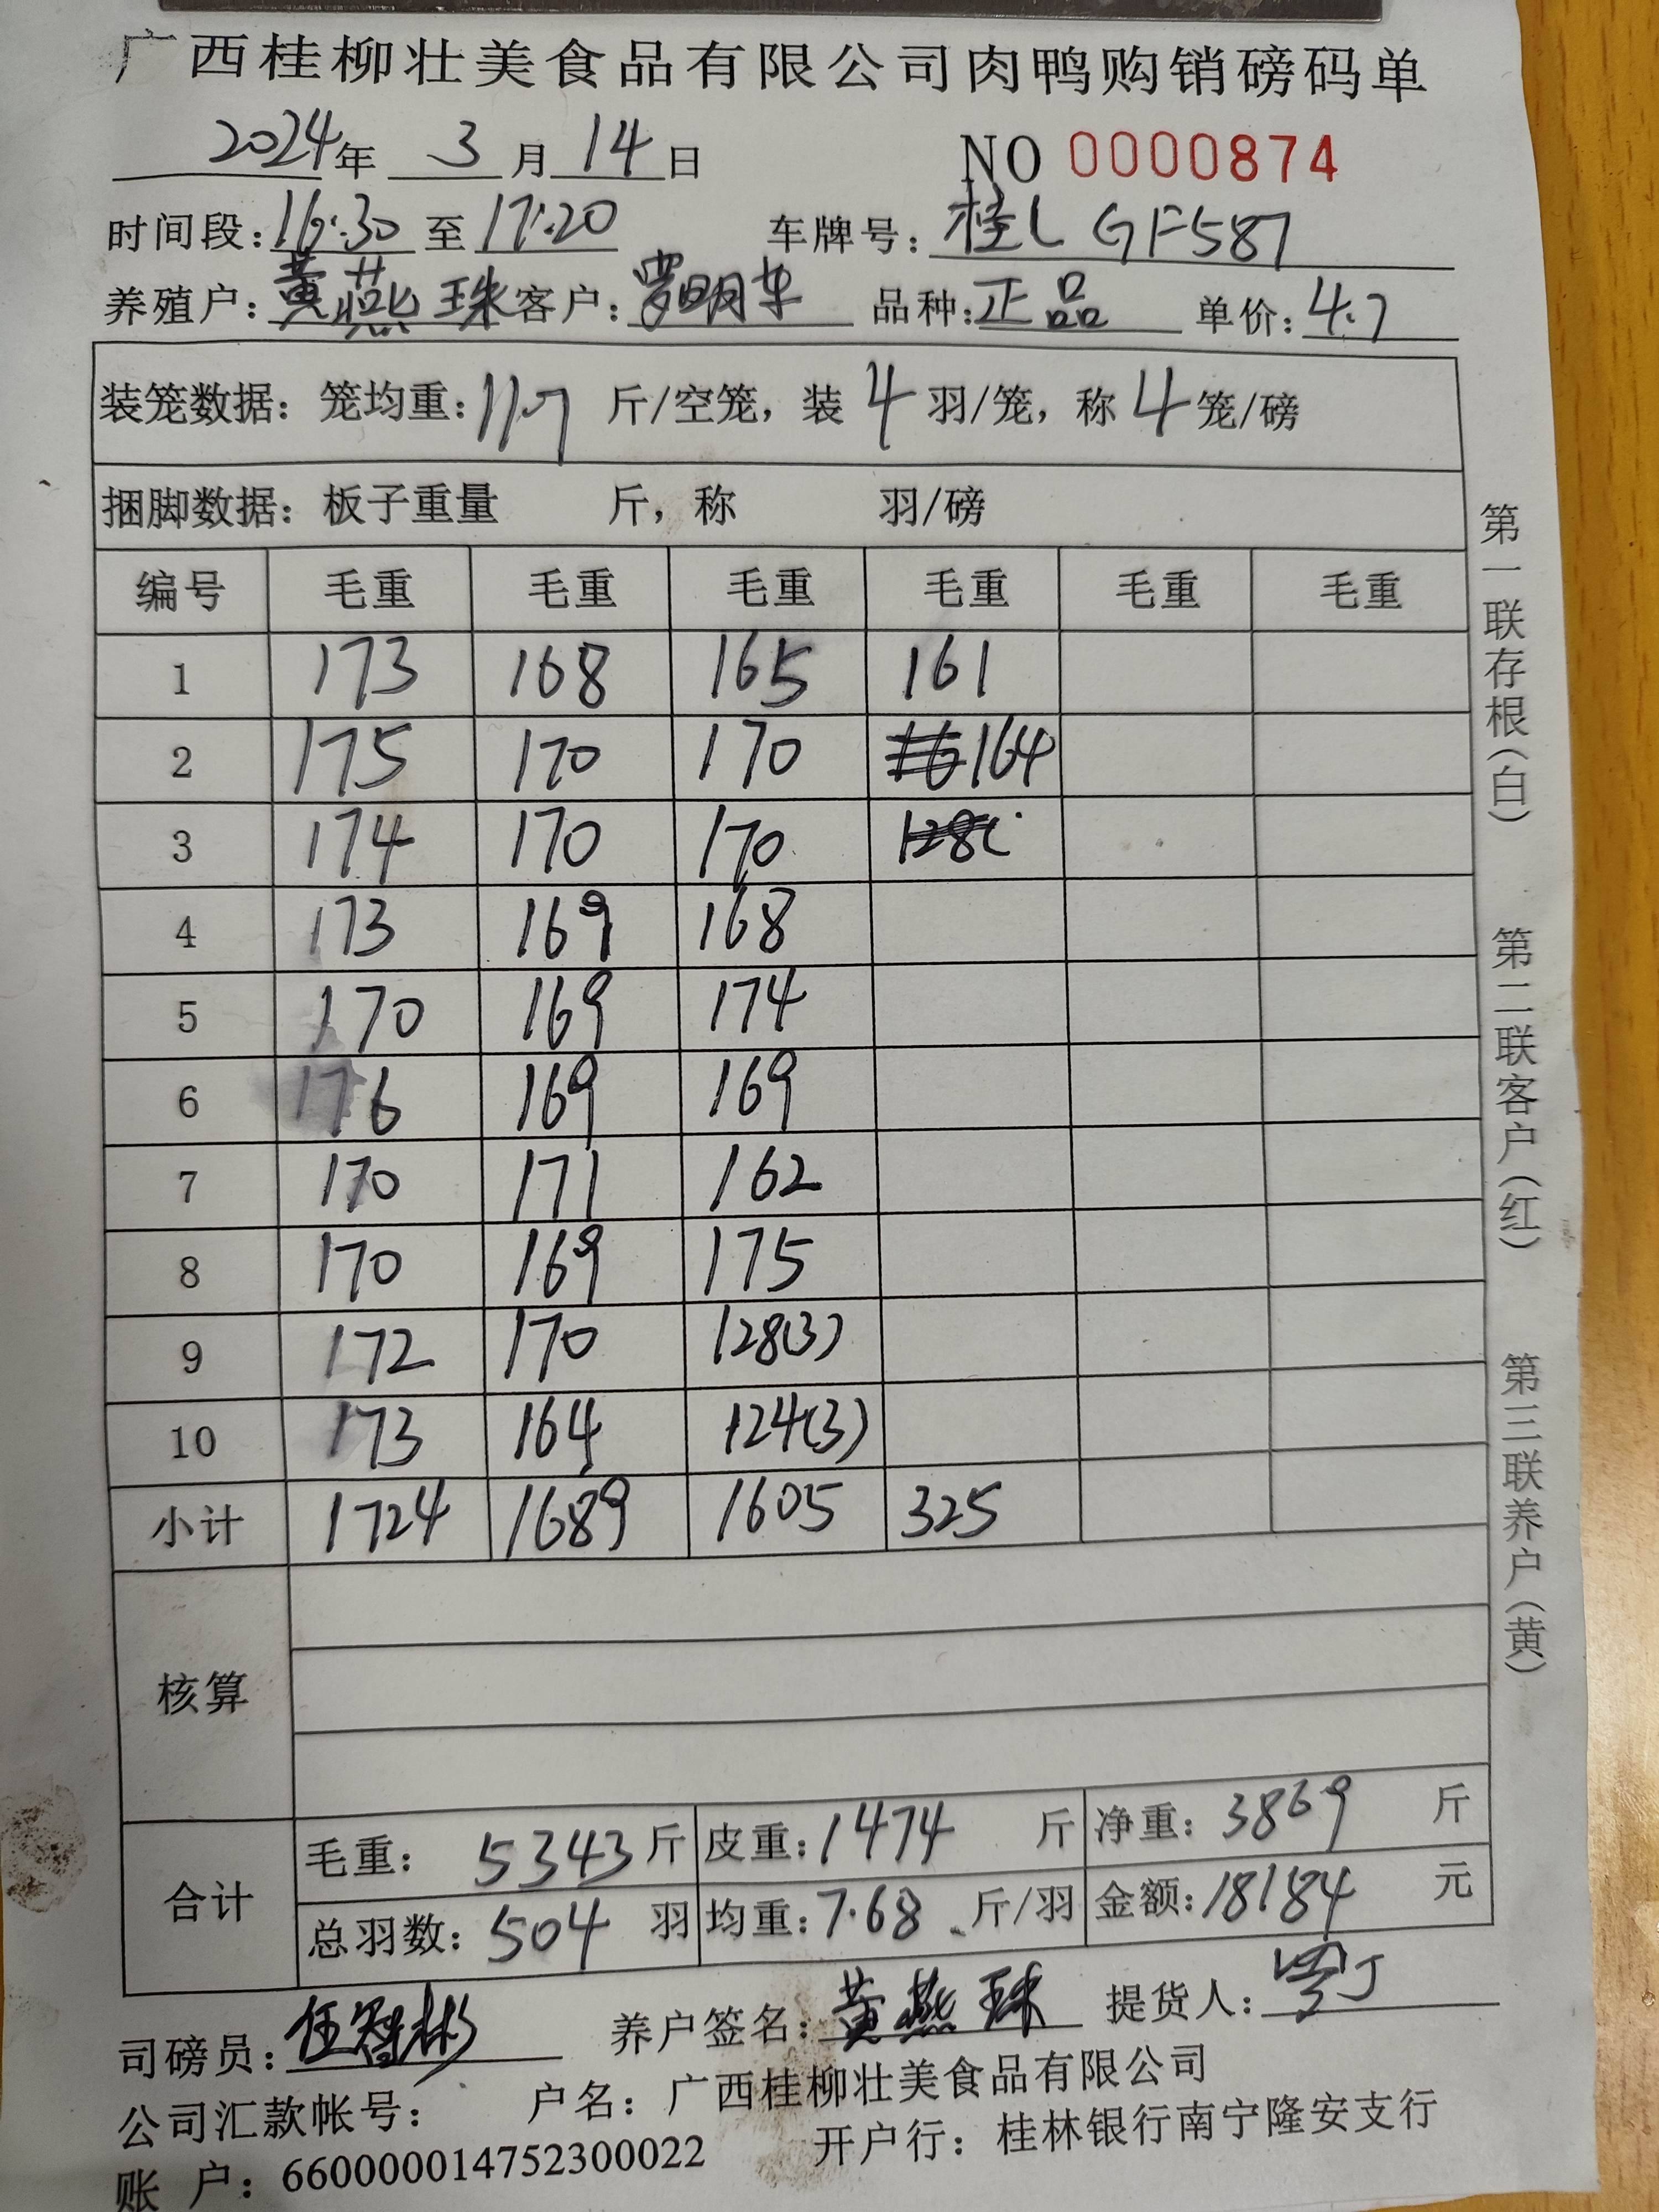 广西桂柳壮美食品有限公司肉鸭购销磅码单
2024年 3月14日 NO 0000874
时间段:16:30至17:20 车牌号:桂L GF587
养殖户:黄燕珠 客户:罗明 品种:正品 单价:4.7
装笼数据:笼均重:11.7斤/空笼,装4羽/笼,称4笼/磅
捆脚数据:板子重量 斤,称 羽/磅
编号 毛重 毛重 毛重 毛重 毛重 毛重
1 173 168 165 161
2 175 170 170 164
3 174 170 170 128
4 173 169 168
5 170 169 174
6 176 169 169
7 170 171 162
8 170 169 175
9 172 170 128(3)
10 173 164 124(3)
小计 1724 1689 1605 325
核算
合计
毛重:5343斤 皮重:1474斤 净重:3869斤
总羽数:504羽 均重:7.68斤/羽 金额:18184元
司磅员:伍智彬 养户签名:黄燕珠 提货人:
公司汇款帐号: 户名:广西桂柳壮美食品有限公司
账 户:660000014752300022 开户行:桂林银行南宁隆安支行
第一联存根(白) 第二联客户(红) 第三联养户(黄)